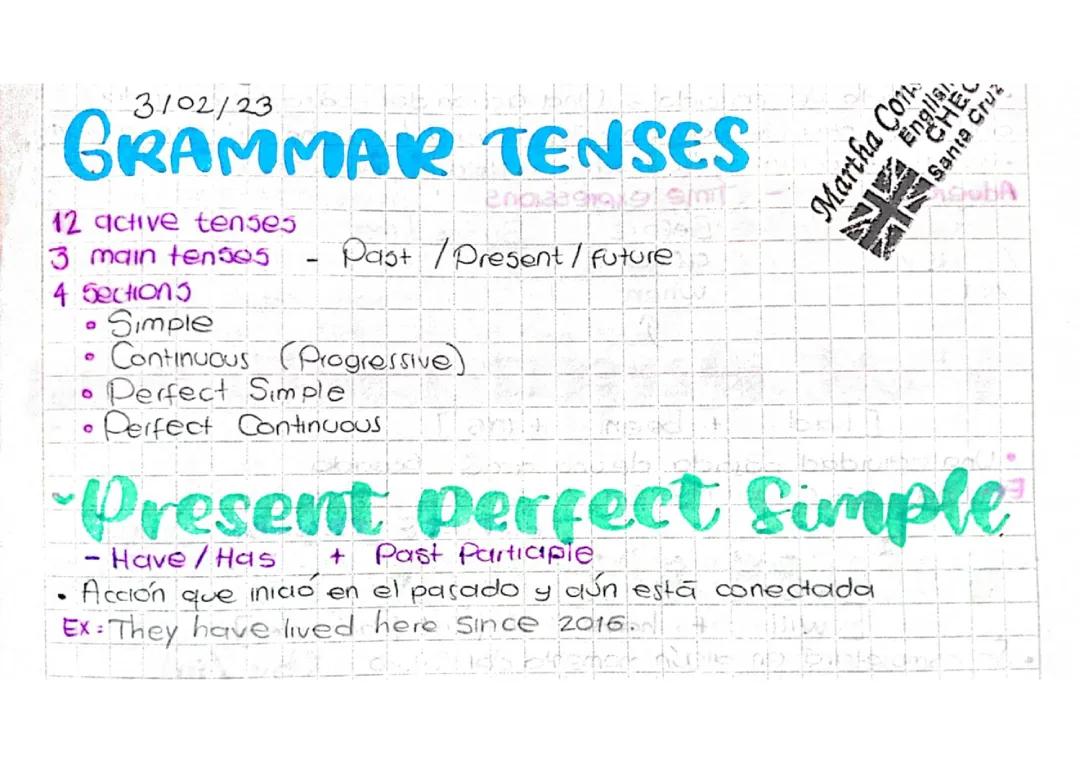 3/02/23
GRAMMAR TENSES
Martha Con
English
CHEC
Santa Cruz
12 active tenses
3 main tenses - Past / Present / Future
4 Sections
• Simple
• Continuous (Progressive)
• Perfect Simple
• Perfect Continuous
Present perfect Simple
- Have / Has + Past Participle
• Acción que inició en el pasado y aún está conectada
Ex: They have lived here Since 2016.